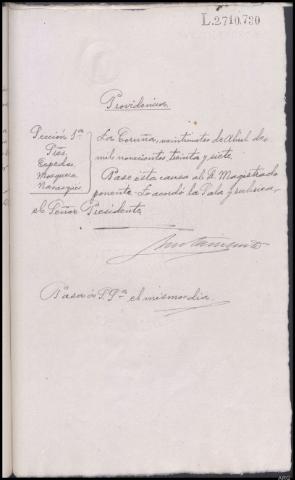 L.2710.730
Providencia
Sección 1ª
Ptes.
Espedes
Mosquera
Naranques
La Coruña, veintisiete de Abril de
mil novecientos treinta y siete.
Pase esta causa al Sr. Magistrado
ponente. Lo acordó la Sala y rubrica,
el Señor Presidente
Pasa á S.Sª el mismo dia.